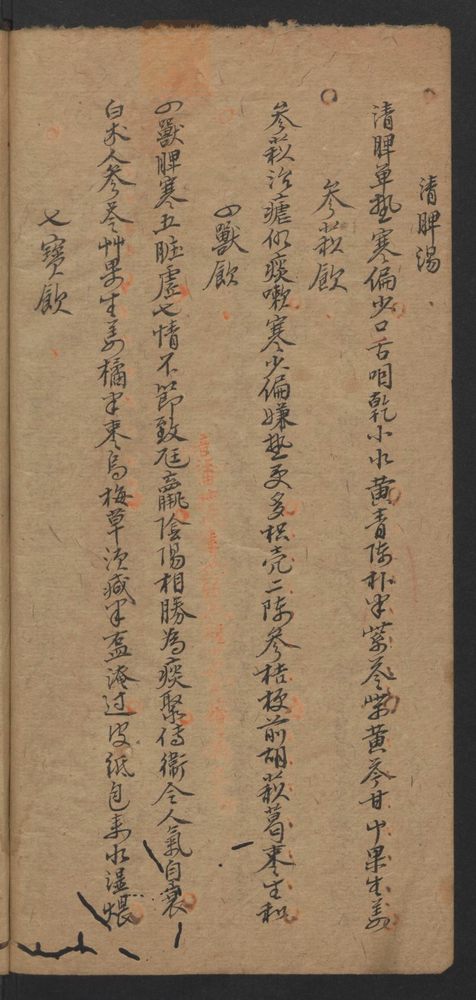 清脾湯
清脾單熱寒偏少口舌咽乾小水黃青陳朴半紫苓柴黃芩甘草果生姜
參蘇飲
參蘇治瘧似痰嗽寒少偏嫌熱更多枳壳二陳參桔梗前胡蘇葛棗生和
四獸飲
四獸脾寒五臟虛七情不節致尫羸陰陽相勝為痰聚侍衛令人氣自衰
白朮人參苓艸果生姜橘半棗烏梅草須減半盐淹过皮紙包煮水湿煨
七寶飲